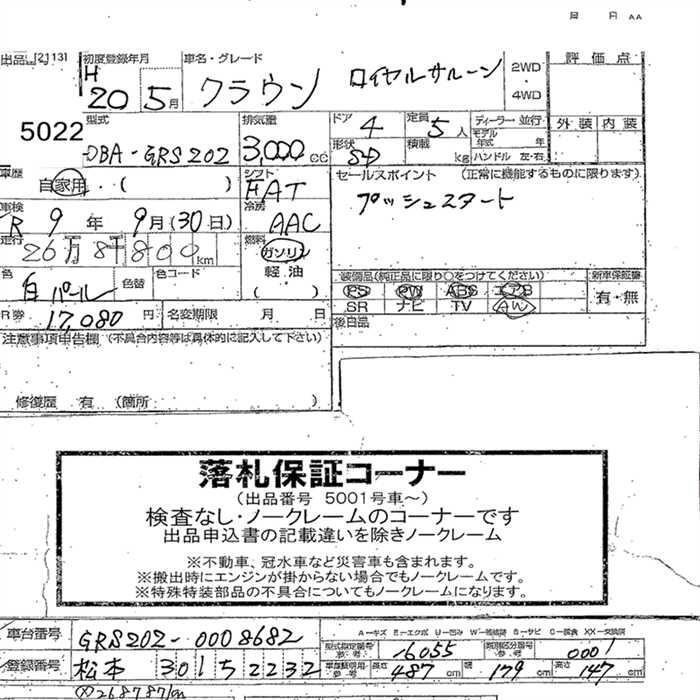 月 日 AA
出品番号 [2113] 初度登録年月 車名・グレード 2WD・4WD 評価点
H 20 5月 クラウン ロイヤルサルーン
5022
型式 排気量 ドア 4 定員 5人 ディーラー・並行 外装 内装
DBA-GRS202 3,000cc 形状 SD 積載 kg モデル年式 年 ハンドル 左・右
車歴 自家用・( ) シフト FAT セールスポイント (正常に機能するものに限ります)
車検 R 9年 9月(30日) 冷房 AAC プッシュスタート
走行 26万8千800km 燃料 ガソリン 軽油 ( )
色 白パール 色替 色コード
装備品(純正品に限り○をつけてください) 新車保証書
PS PW ABS エアB 有・無
SR ナビ TV AW
R券 17,080円 名変期限 月 日 後日品
注意事項申告欄 (不具合内容等は具体的に記入して下さい)
修復歴 有 (箇所 )
落札保証コーナー
(出品番号 5001号車～)
検査なし・ノークレームのコーナーです
出品申込書の記載違いを除きノークレーム
※不動車、冠水車など災害車も含まれます。
※搬出時にエンジンが掛からない場合でもノークレームです。
※特殊特装部品の不具合についてもノークレームになります。
車台番号 GRS202-0008682
型式指定番号 16055 類別区分番号 0001
登録番号 松本 301 ち 2232 長さ 487cm 幅 179cm 高さ 147cm
268787km